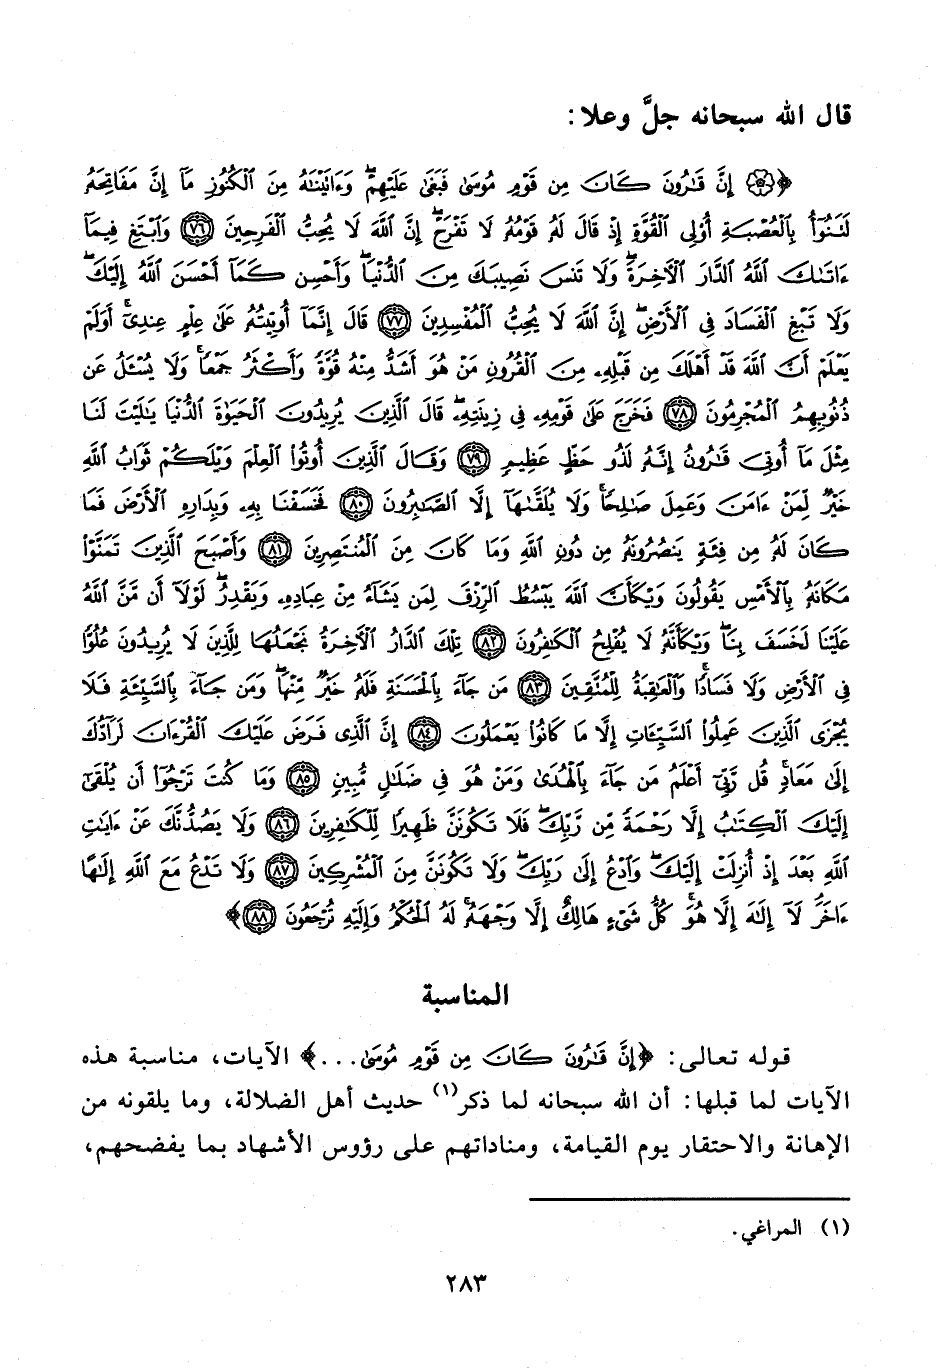 قال الله سبحانه جلَّ وعلا:
﴿۞ إِنَّ قَٰرُونَ كَانَ مِن قَوْمِ مُوسَىٰ فَبَغَىٰ عَلَيْهِمْ ۖ وَءَاتَيْنَٰهُ مِنَ ٱلْكُنُوزِ مَآ إِنَّ مَفَاتِحَهُۥ
لَتَنُوٓأُ بِٱلْعُصْبَةِ أُو۟لِى ٱلْقُوَّةِ إِذْ قَالَ لَهُۥ قَوْمُهُۥ لَا تَفْرَحْ ۖ إِنَّ ٱللَّهَ لَا يُحِبُّ ٱلْفَرِحِينَ ٧٦ وَٱبْتَغِ فِيمَآ
ءَاتَىٰكَ ٱللَّهُ ٱلدَّارَ ٱلْءَاخِرَةَ ۖ وَلَا تَنسَ نَصِيبَكَ مِنَ ٱلدُّنْيَا ۖ وَأَحْسِن كَمَآ أَحْسَنَ ٱللَّهُ إِلَيْكَ ۖ
وَلَا تَبْغِ ٱلْفَسَادَ فِى ٱلْأَرْضِ ۖ إِنَّ ٱللَّهَ لَا يُحِبُّ ٱلْمُفْسِدِينَ ٧٧ قَالَ إِنَّمَآ أُوتِيتُهُۥ عَلَىٰ عِلْمٍ عِندِىٓ ۚ أَوَلَمْ
يَعْلَمْ أَنَّ ٱللَّهَ قَدْ أَهْلَكَ مِن قَبْلِهِۦ مِنَ ٱلْقُرُونِ مَنْ هُوَ أَشَدُّ مِنْهُ قُوَّةً وَأَكْثَرُ جَمْعًا ۚ وَلَا يُسْـَٔلُ عَن
ذُنُوبِهِمُ ٱلْمُجْرِمُونَ ٧٨ فَخَرَجَ عَلَىٰ قَوْمِهِۦ فِى زِينَتِهِۦ ۖ قَالَ ٱلَّذِينَ يُرِيدُونَ ٱلْحَيَوٰةَ ٱلدُّنْيَا يَٰلَيْتَ لَنَا
مِثْلَ مَآ أُوتِىَ قَٰرُونُ إِنَّهُۥ لَذُو حَظٍّ عَظِيمٍ ٧٩ وَقَالَ ٱلَّذِينَ أُوتُوا۟ ٱلْعِلْمَ وَيْلَكُمْ ثَوَابُ ٱللَّهِ
خَيْرٌ لِّمَنْ ءَامَنَ وَعَمِلَ صَٰلِحًا ۚ وَلَا يُلَقَّىٰهَآ إِلَّا ٱلصَّٰبِرُونَ ٨٠ فَخَسَفْنَا بِهِۦ وَبِدَارِهِ ٱلْأَرْضَ فَمَا
كَانَ لَهُۥ مِن فِئَةٍ يَنصُرُونَهُۥ مِن دُونِ ٱللَّهِ وَمَا كَانَ مِنَ ٱلْمُنتَصِرِينَ ٨١ وَأَصْبَحَ ٱلَّذِينَ تَمَنَّوْا۟
مَكَانَهُۥ بِٱلْأَمْسِ يَقُولُونَ وَيْكَأَنَّ ٱللَّهَ يَبْسُطُ ٱلرِّزْقَ لِمَن يَشَآءُ مِنْ عِبَادِهِۦ وَيَقْدِرُ ۖ لَوْلَآ أَن مَّنَّ ٱللَّهُ
عَلَيْنَا لَخَسَفَ بِنَا ۖ وَيْكَأَنَّهُۥ لَا يُفْلِحُ ٱلْكَٰفِرُونَ ٨٢ تِلْكَ ٱلدَّارُ ٱلْءَاخِرَةُ نَجْعَلُهَا لِلَّذِينَ لَا يُرِيدُونَ عُلُوًّا
فِى ٱلْأَرْضِ وَلَا فَسَادًا ۚ وَٱلْعَٰقِبَةُ لِلْمُتَّقِينَ ٨٣ مَن جَآءَ بِٱلْحَسَنَةِ فَلَهُۥ خَيْرٌ مِّنْهَا ۖ وَمَن جَآءَ بِٱلسَّيِّئَةِ فَلَا
يُجْزَى ٱلَّذِينَ عَمِلُوا۟ ٱلسَّيِّـَٔاتِ إِلَّا مَا كَانُوا۟ يَعْمَلُونَ ٨٤ إِنَّ ٱلَّذِى فَرَضَ عَلَيْكَ ٱلْقُرْءَانَ لَرَآدُّكَ
إِلَىٰ مَعَادٍ ۚ قُل رَّبِّىٓ أَعْلَمُ مَن جَآءَ بِٱلْهُدَىٰ وَمَنْ هُوَ فِى ضَلَٰلٍ مُّبِينٍ ٨٥ وَمَا كُنتَ تَرْجُوٓا۟ أَن يُلْقَىٰٓ
إِلَيْكَ ٱلْكِتَٰبُ إِلَّا رَحْمَةً مِّن رَّبِّكَ ۖ فَلَا تَكُونَنَّ ظَهِيرًا لِّلْكَٰفِرِينَ ٨٦ وَلَا يَصُدُّنَّكَ عَنْ ءَايَٰتِ
ٱللَّهِ بَعْدَ إِذْ أُنزِلَتْ إِلَيْكَ ۖ وَٱدْعُ إِلَىٰ رَبِّكَ ۖ وَلَا تَكُونَنَّ مِنَ ٱلْمُشْرِكِينَ ٨٧ وَلَا تَدْعُ مَعَ ٱللَّهِ إِلَٰهًا
ءَاخَرَ ۘ لَآ إِلَٰهَ إِلَّا هُوَ ۚ كُلُّ شَىْءٍ هَالِكٌ إِلَّا وَجْهَهُۥ ۚ لَهُ ٱلْحُكْمُ وَإِلَيْهِ تُرْجَعُونَ ٨٨﴾
المناسبة
قوله تعالى: ﴿إِنَّ قَٰرُونَ كَانَ مِن قَوْمِ مُوسَىٰ...﴾ الآيات، مناسبة هذه
الآيات لما قبلها: أن الله سبحانه لما ذكر(١) حديث أهل الضلالة، وما يلقونه من
الإهانة والاحتقار يوم القيامة، ومناداتهم على رؤوس الأشهاد بما يفضحهم،
(١) المراغي.
٢٨٣